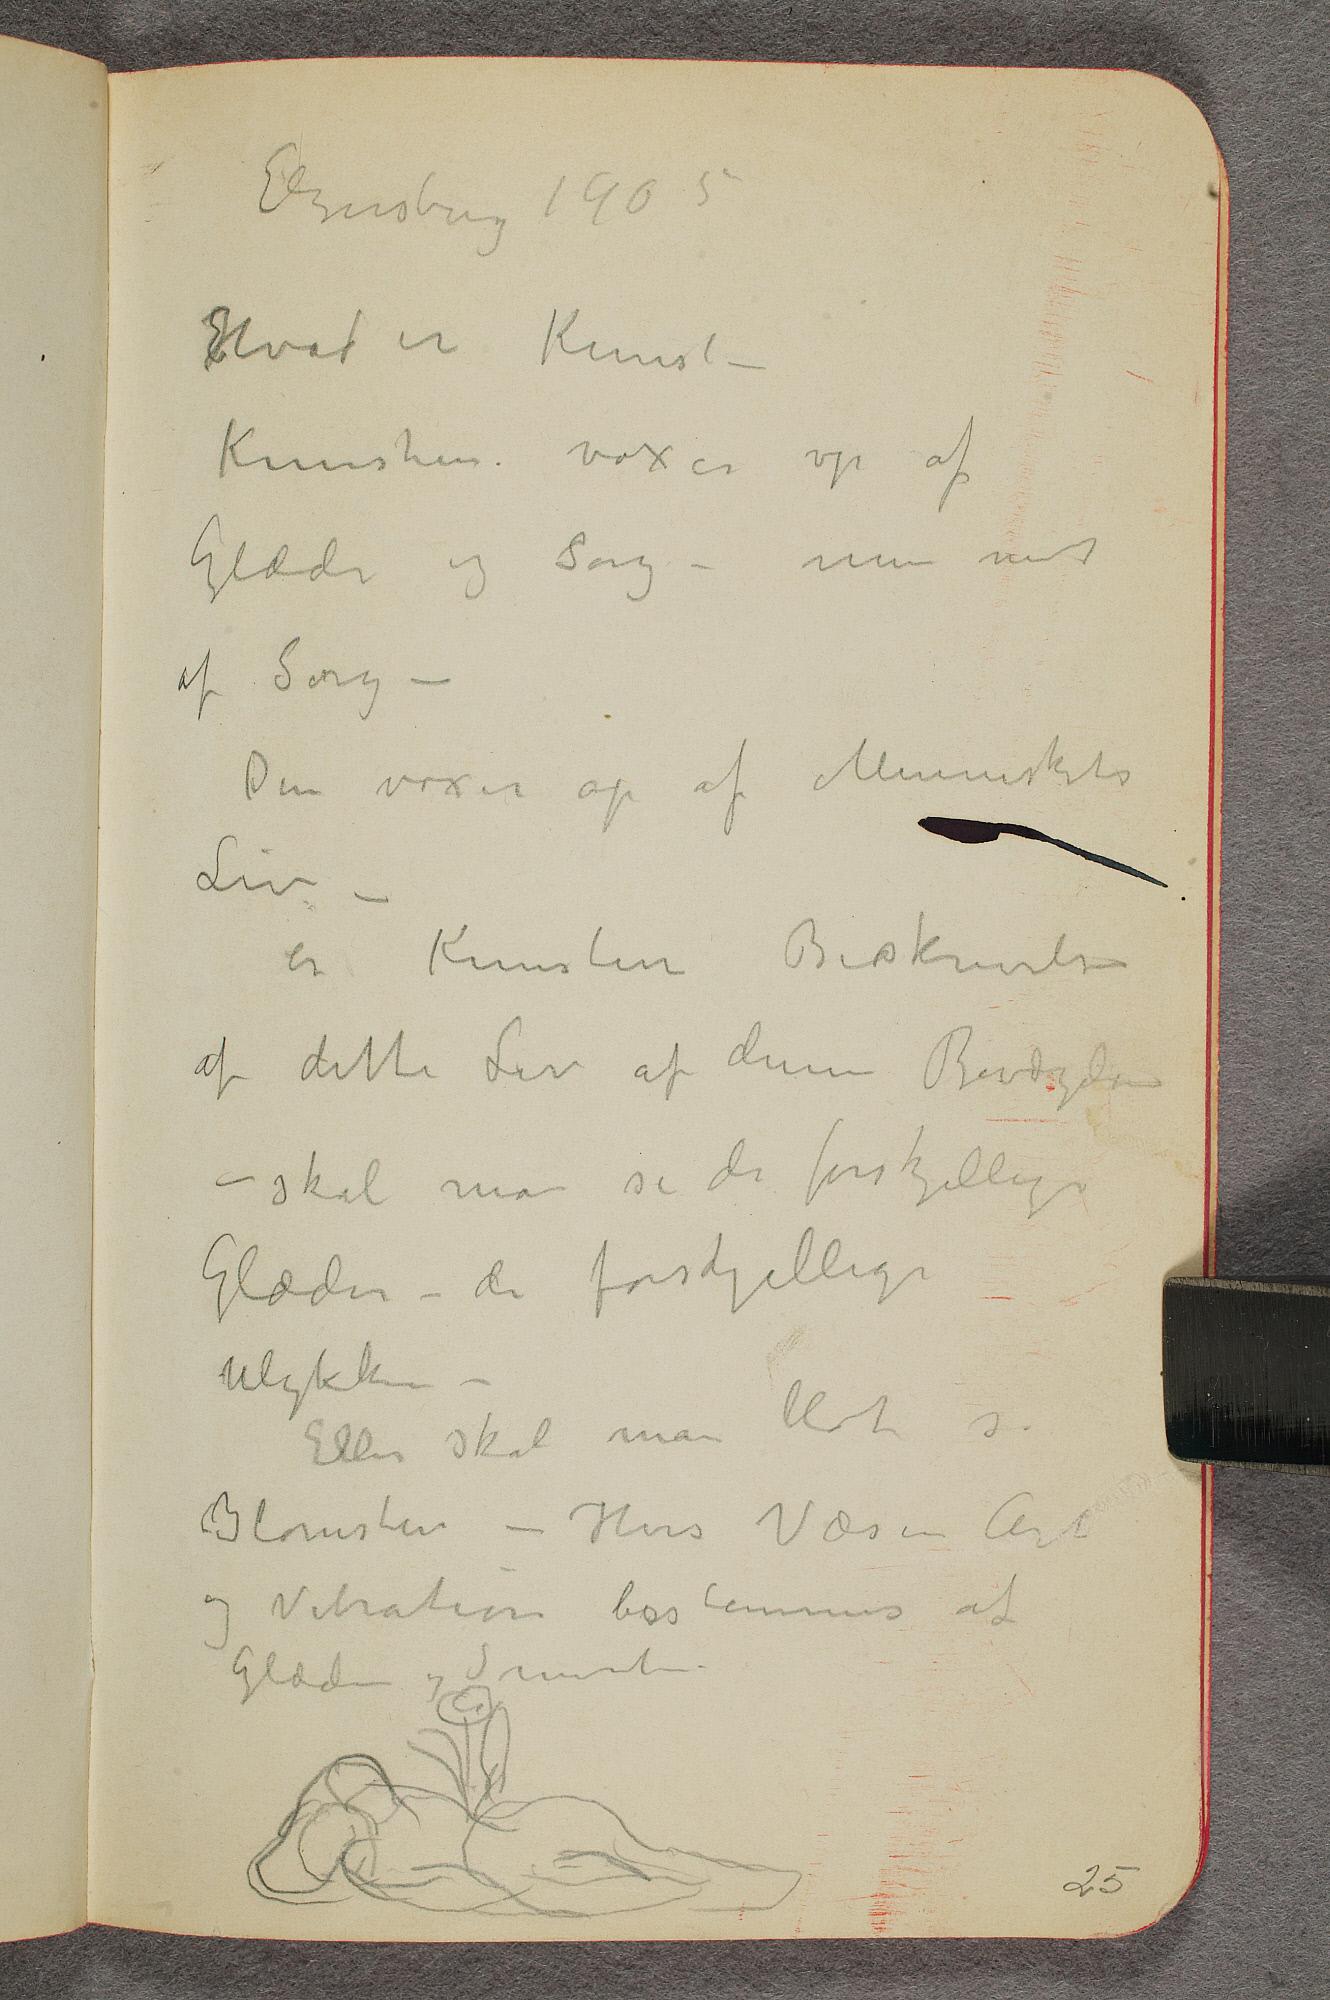 Elgersburg 1905
Hvad er Kunst –
Kunsten voxer op af
Glæde og Sorg – men mest
af Sorg –
Den voxer op af Menneskets
Liv –
er Kunsten Beskrivelse
af dette Liv af denne Bevægelse
– skal man se de forskjellige
Glæder – de forskjellige
Ulykker –
Eller skal man blot se
Blomsten – Hvis Væsen Art
og Vibration bestemmes af
Glæden og Smerten.
25